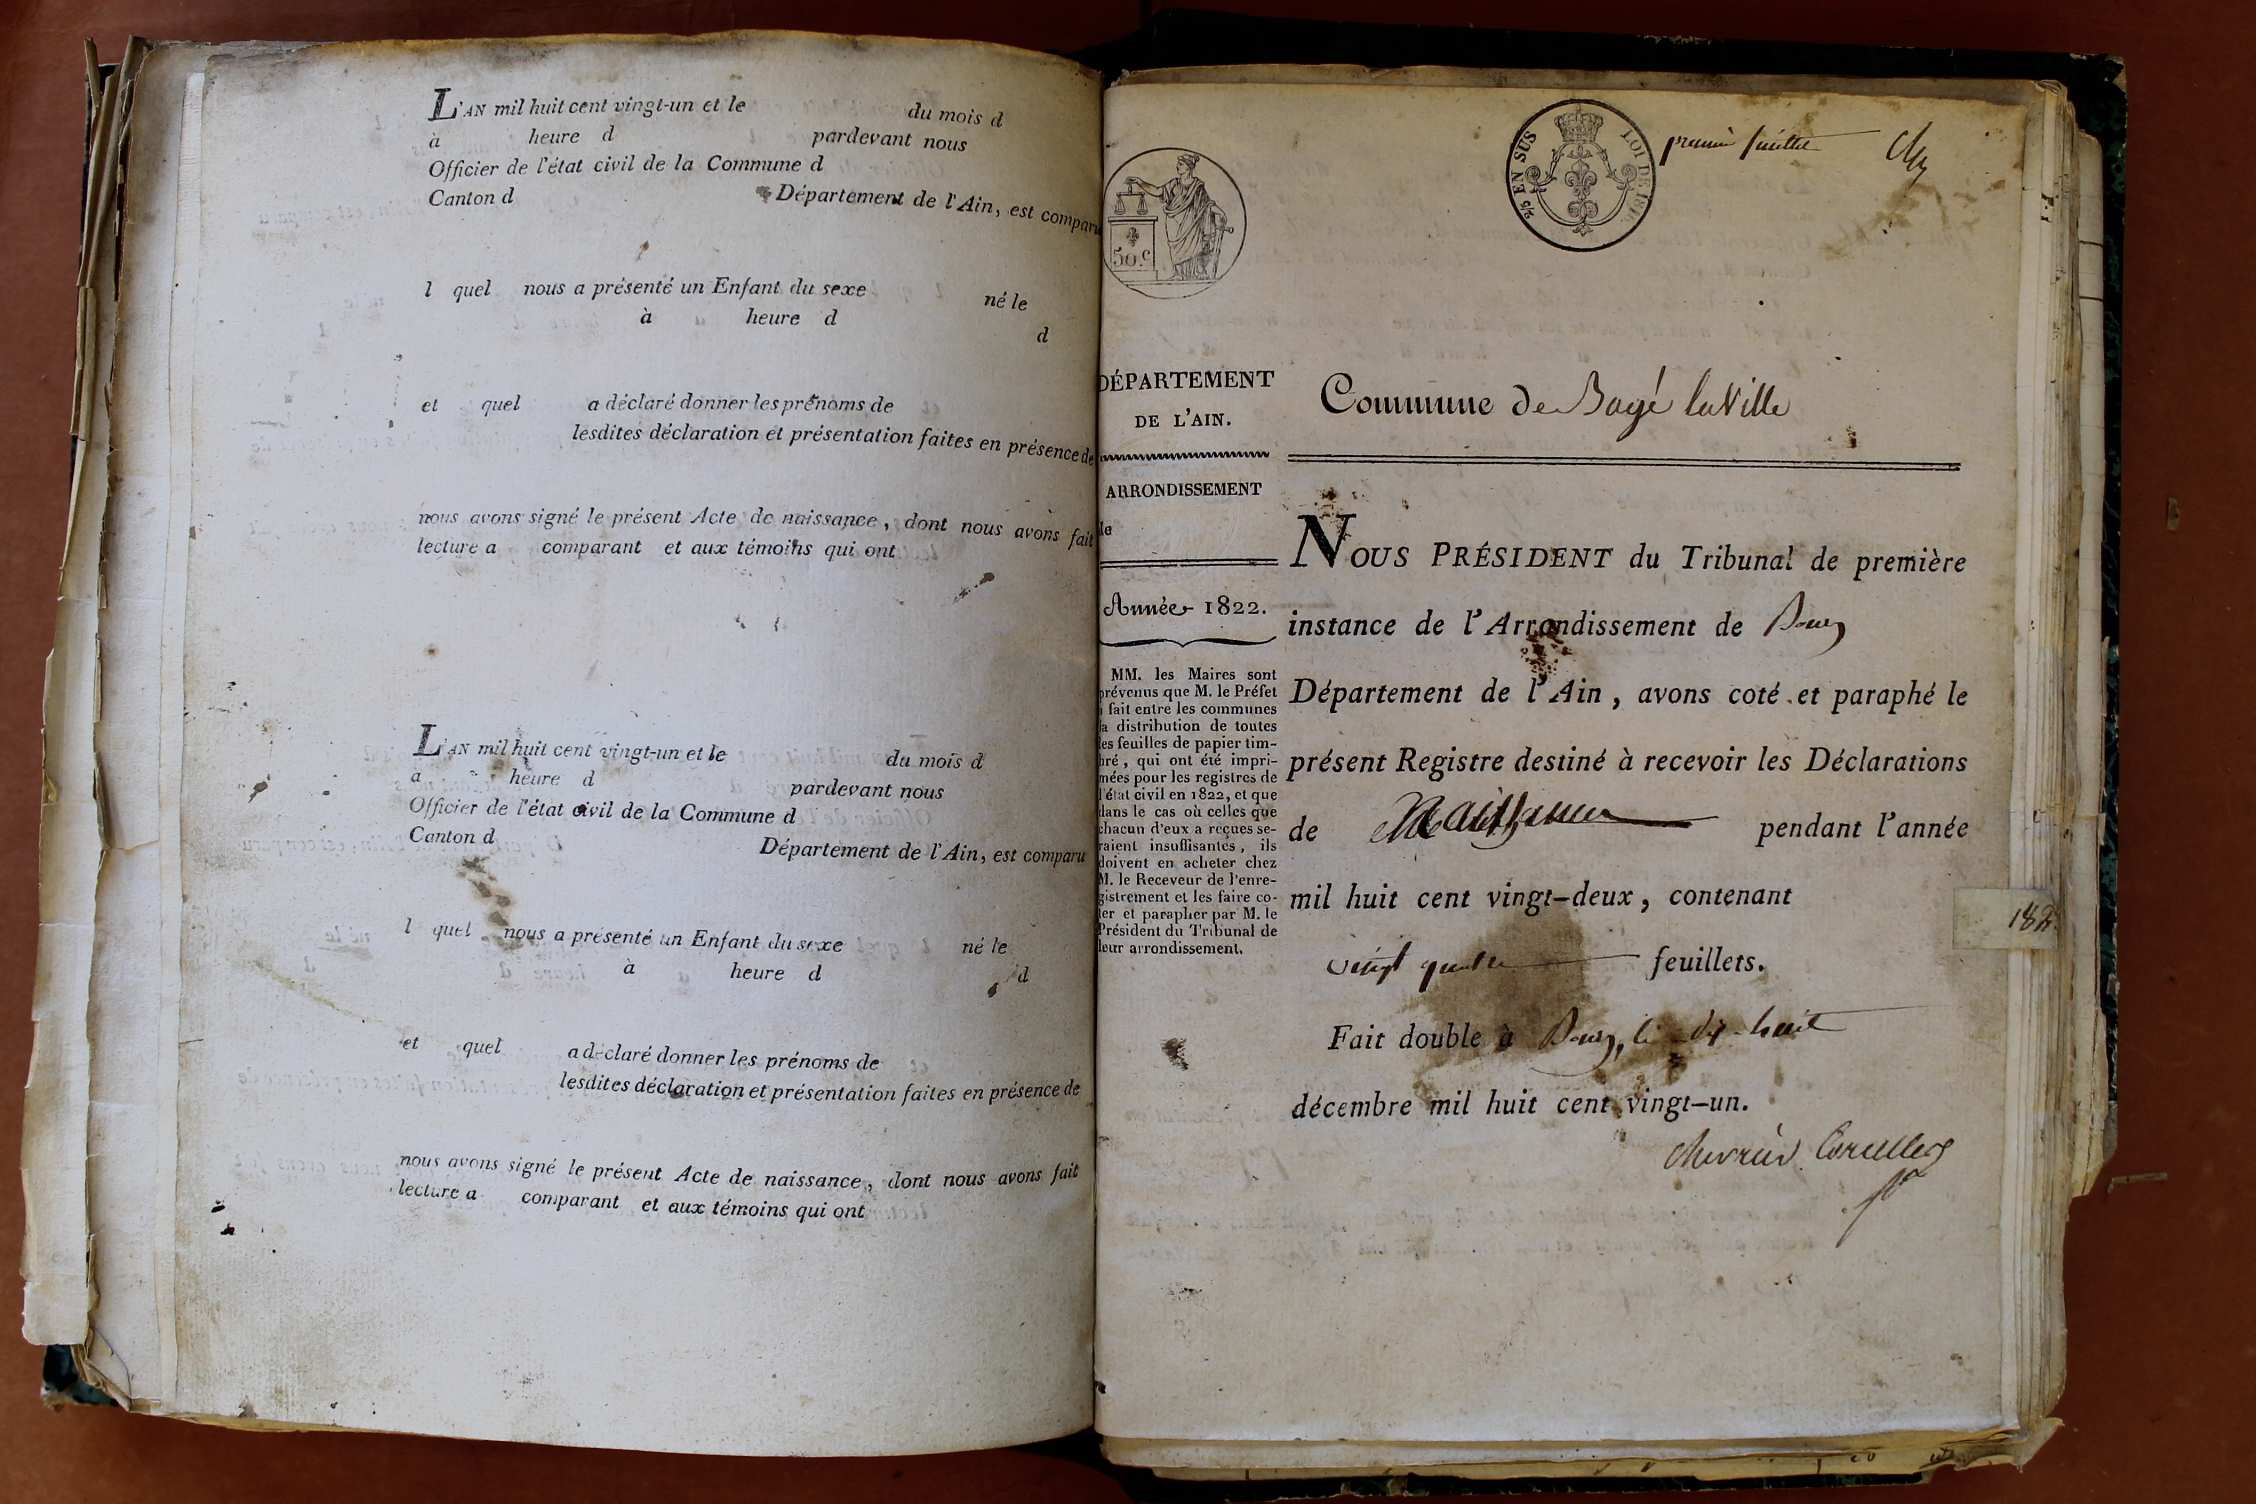 L'AN mil huit cent vingt-un et le du mois d
à heure d pardevant nous
Officier de l'état civil de la Commune d
Canton d Département de l'Ain, est comparu
l quel nous a présenté un Enfant du sexe né le
à heure d
d
et quel a déclaré donner les prénoms de
lesdites déclaration et présentation faites en présence de
nous avons signé le présent Acte de naissance, dont nous avons fait
lecture a comparant et aux témoins qui ont
L'AN mil huit cent vingt-un et le du mois d
à heure d pardevant nous
Officier de l'état civil de la Commune d
Canton d Département de l'Ain, est comparu
l quel nous a présenté un Enfant du sexe né le
à heure d d
et quel a déclaré donner les prénoms de
lesdites déclaration et présentation faites en présence de
nous avons signé le présent Acte de naissance, dont nous avons fait
lecture a comparant et aux témoins qui ont
50.c
EN SUS LOI DE 1816
premier feuillet
DÉPARTEMENT
DE L'AIN.
ARRONDISSEMENT
de
Année 1822.
MM. les Maires sont
prévenus que M. le Préfet
a fait entre les communes
la distribution de toutes
les feuilles de papier tim-
bré, qui ont été impri-
mées pour les registres de
l'état civil en 1822, et que
dans le cas où celles que
chacun d'eux a reçues se-
raient insuffisantes, ils
doivent en acheter chez
M. le Receveur de l'enre-
gistrement et les faire co-
ter et parapher par M. le
Président du Tribunal de
leur arrondissement.
Commune de Bagé la Ville
NOUS PRÉSIDENT du Tribunal de première
instance de l'Arrondissement de Bourg
Département de l'Ain, avons coté et paraphé le
présent Registre destiné à recevoir les Déclarations
de Naissances pendant l'année
mil huit cent vingt-deux, contenant
vingt quatre feuillets.
Fait double à Bourg, le dix-huit
décembre mil huit cent vingt-un.
182